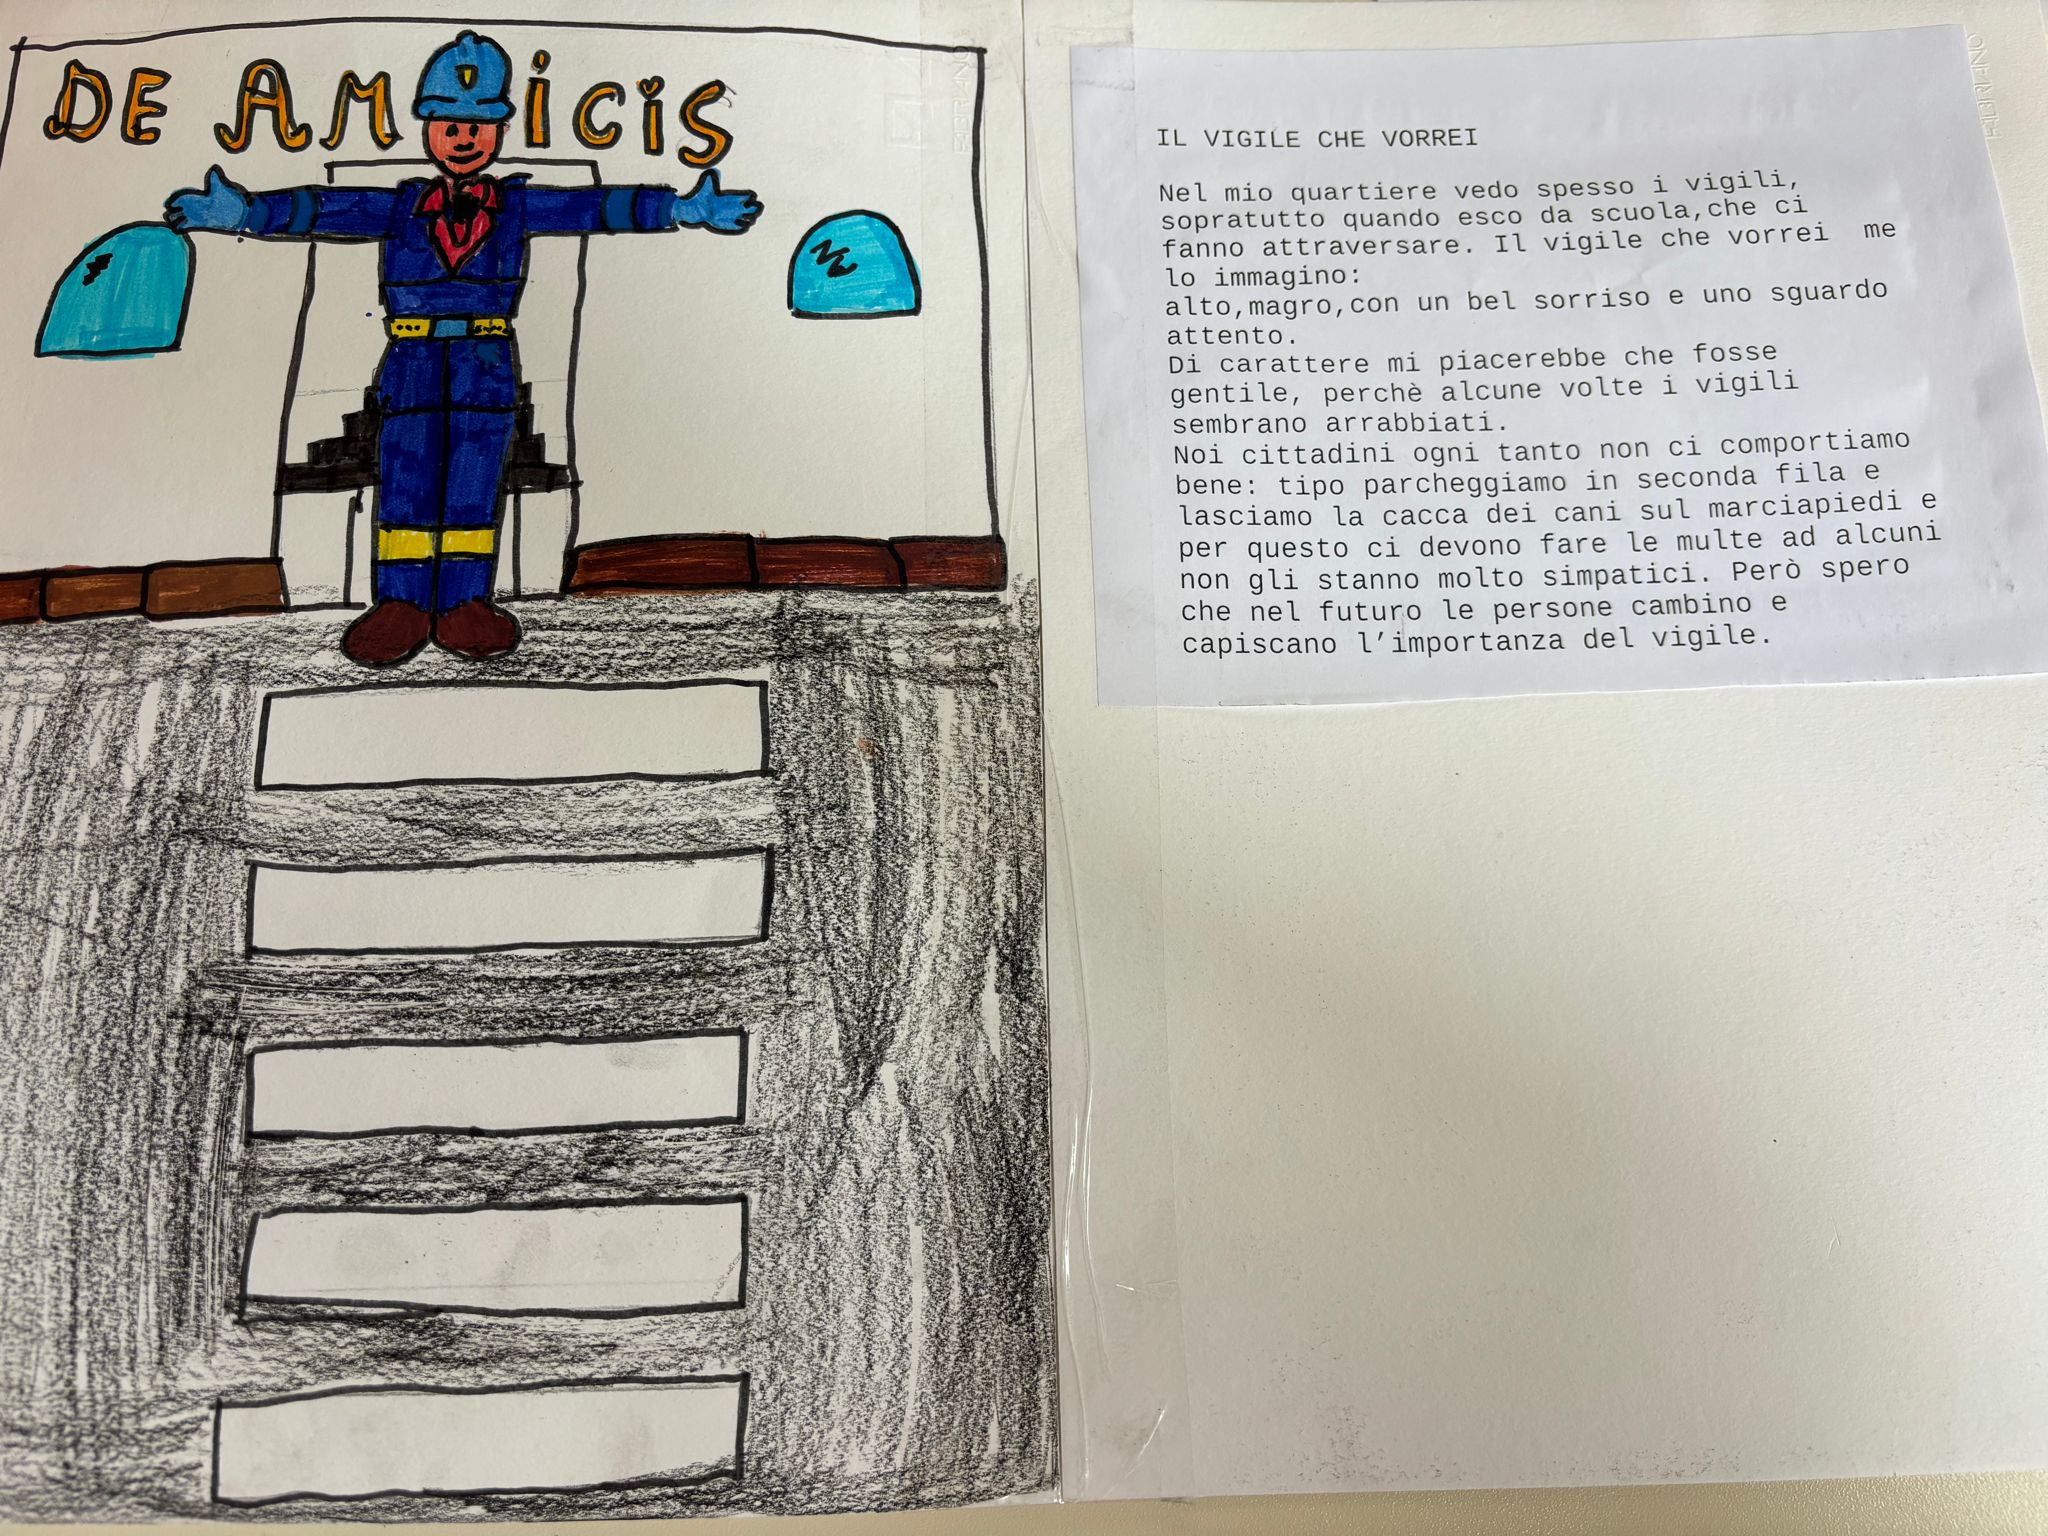 DE AMICIS
IL VIGILE CHE VORREI
Nel mio quartiere vedo spesso i vigili,
sopratutto quando esco da scuola,che ci
fanno attraversare. Il vigile che vorrei  me
lo immagino:
alto,magro,con un bel sorriso e uno sguardo
attento.
Di carattere mi piacerebbe che fosse
gentile, perchè alcune volte i vigili
sembrano arrabbiati.
Noi cittadini ogni tanto non ci comportiamo
bene: tipo parcheggiamo in seconda fila e
lasciamo la cacca dei cani sul marciapiedi e
per questo ci devono fare le multe ad alcuni
non gli stanno molto simpatici. Però spero
che nel futuro le persone cambino e
capiscano l’importanza del vigile.
FABRIANO
FABRIANO